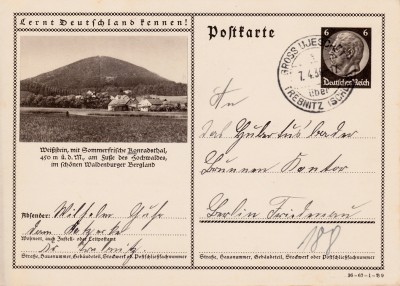 Lernt Deutschland kennen!
Postkarte
6 6
Deutsches Reich
GROSS UJESCHÜTZ
7.4.36
über
TREBNITZ (SCHLES)
Weißstein, mit Sommerfrische Konradsthal,
450 m ü. d. M., am Fuße des Hochwaldes,
im schönen Waldenburger Bergland
An
Das Hubertusbader
Brunnen Kontor
Berlin Friedenau
188
Absender: Wilhelm
Wohnort, auch Zustell- oder Leitpostamt
Kr. Trebnitz
Straße, Hausnummer, Gebäudeteil, Stockwerk od. Postschließfachnummer
Straße, Hausnummer, Gebäudeteil, Stockwerk oder Postschließfachnummer